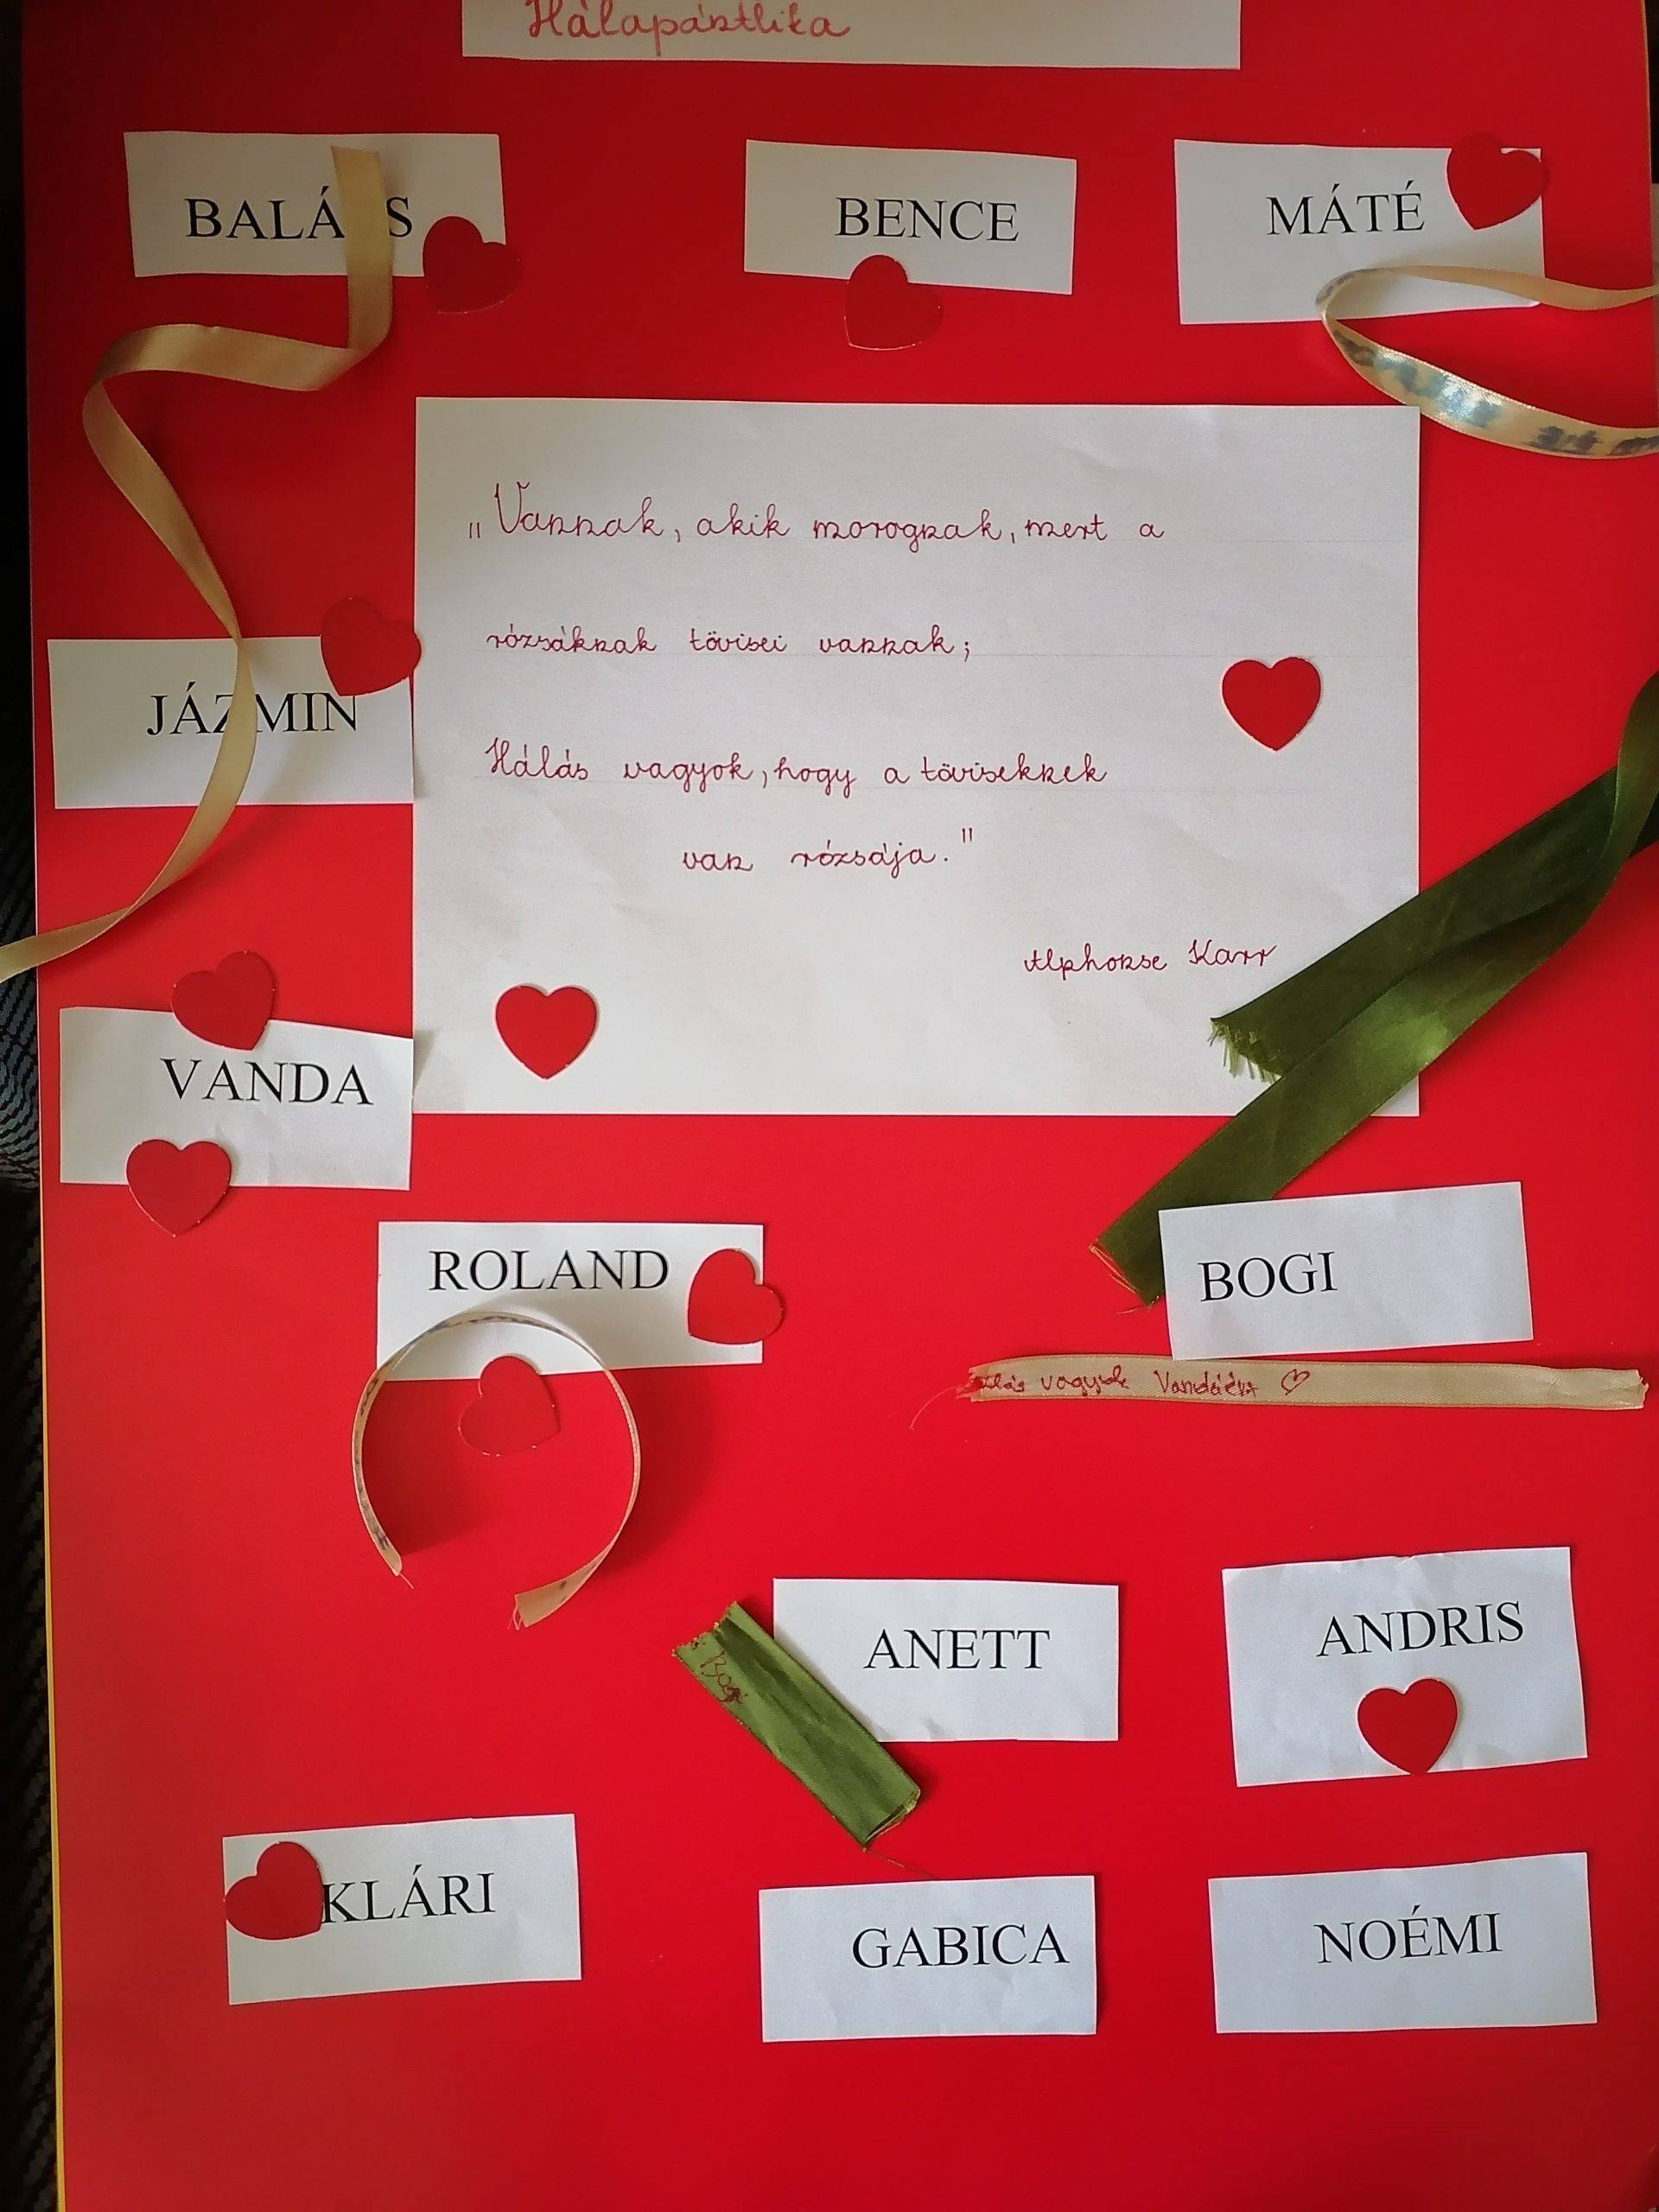 Hálapántlika
BALÁ S
BENCE
MÁTÉ
„Vannak, akik morognak, mert a
rózsáknak tövisei vannak;
JÁZMIN
Hálás vagyok, hogy a töviseknek
van rózsája."
Alphonse Karr
VANDA
ROLAND
BOGI
vagyok Vandáért
ANETT
ANDRIS
Bogi
KLÁRI
GABICA
NOÉMI